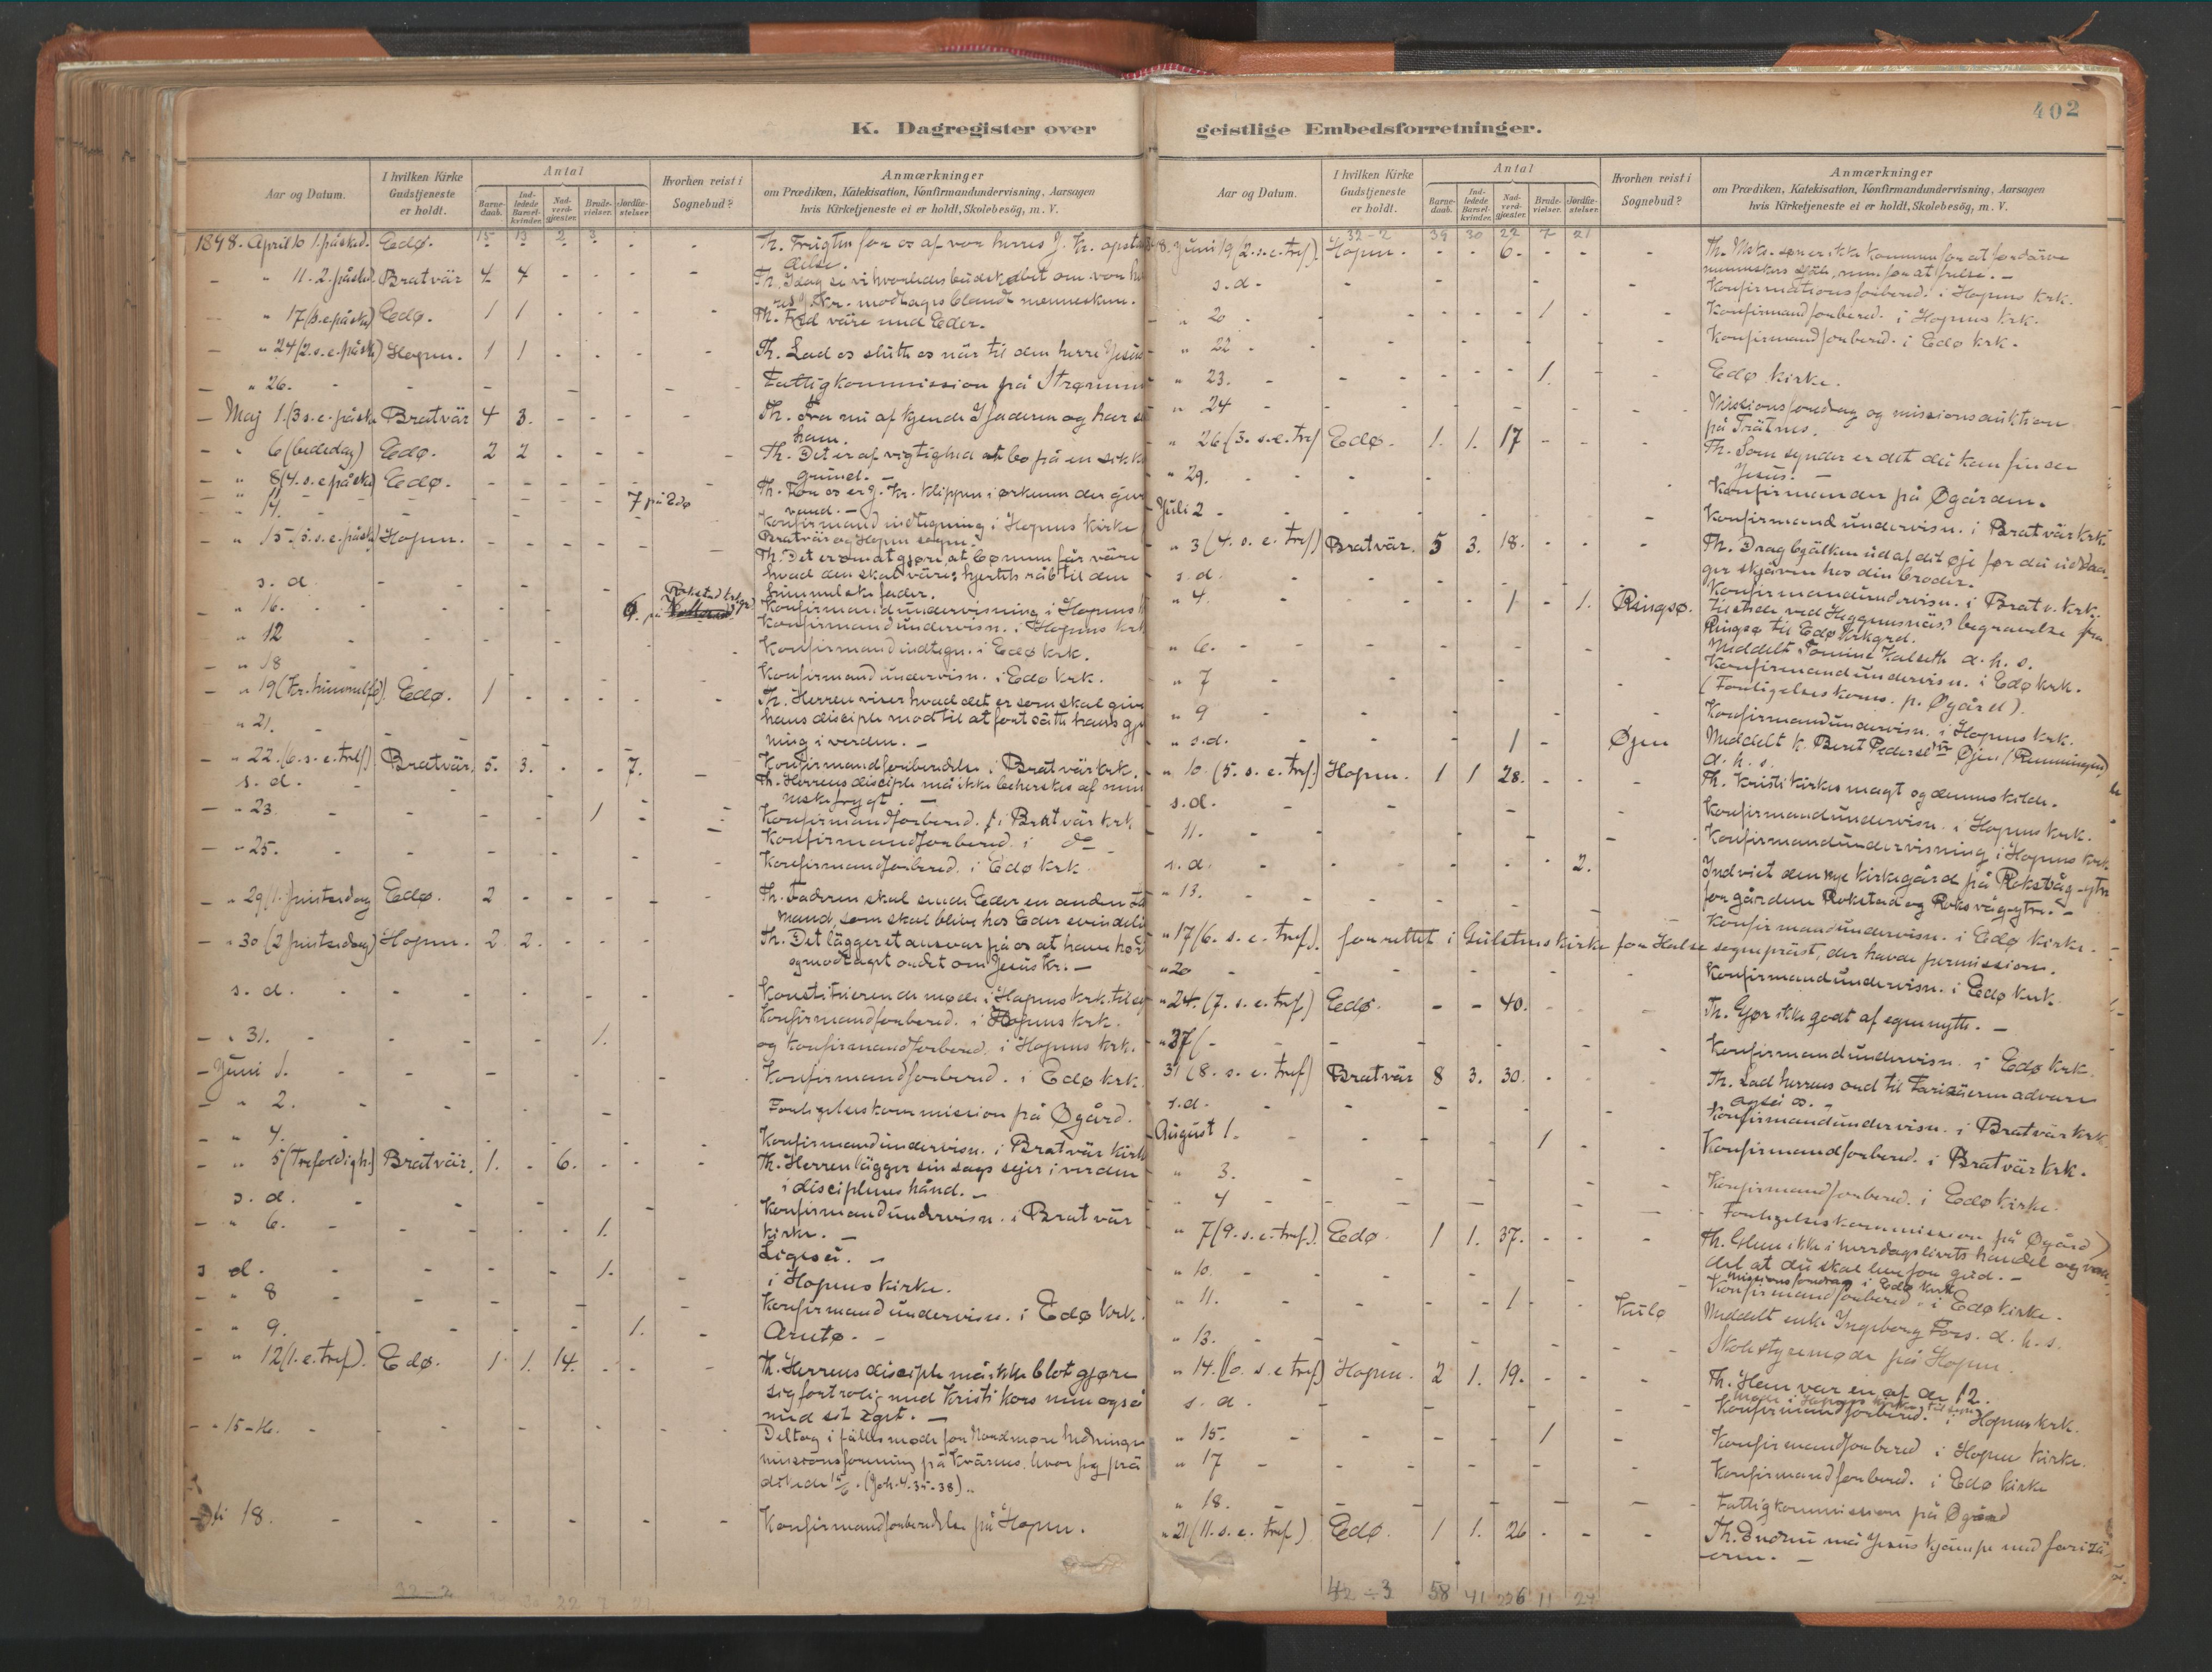 402
K. Dagregister over
geistlige Embedsforretninger.
Aar og Datum.
I hvilken Kirke Gudstjeneste er holdt.
Antal
Barne-daab.
Ind-ledede Barsel-kvinder.
Nad-verd-gjæster.
Brude-vielser.
Jordfæ-stelser.
Hvorhen reist i Sognebud?
Anmærkninger
om Prædiken, Katekisation, Konfirmandundervisning, Aarsagen
hvis Kirketjeneste ei er holdt, Skolebesög, m. V.
15 13 2 3
1898. April 10 1. påsked. Edø. Th. Frugten for os af vor herres J. Kr. opstan
delse.
" 11. 2. påsked. Bratvär 4 4 Th. Idag se vi hvorledes budskabet om vor
Kr. modtages blandt menneskene.
" 17 (1. s. e. påske) Edø. 1 1 Th. Fred väre med Eder.
" 24 (2. s. e. påsk) Hopen. 1 1 Th. Lad os slutte os når til den herre Jesus
" 26. Fattigkommission på Strømmen
Maj 1. (3 s. e. påske Bratvär 4 3. Th. Fra nu af kjende I faderen og har
ham.
" 6 (bededag) Edø. 2 2 Th. Det er af vigtighed at bo på en sikker
grund. —
" 8 (4. s. e. påske) Edø. Th. For os er J. Kr. klippen i ørkenen der giver
vand. —
" 14. 7 på Edø Konfirmand indtegning i Hopens kirke
Bratvär og Hopen sogn.
" 15. (5. s. e. påsk) Hopen. Th. Det er om at gjøre, at bønnen får väre
hvad den skal väre: hjertets råb til den
himmelske fader.
s. d. Konfirmandundervisning i Hopens
" 16. 6. på Rokstad Konfirmandundervisn. i Hopens krk
" 12 Konfirmand indtegn. i Edø krk.
" 18 Konfirmand undervisn. i Edø krk.
" 19 (Kr. himmelfd). Edø. 1 Th. Herren viser hvad det er som skal give
hans disciple mod til at fortsätte hans gjer
ning i verden. —
" 21. Konfirmandforberedelse i Bratvär krk.
" 22. (6. s. e. Bratvär. 5. 3. 7. Th. Herrens disciple må ikke beherskes af men
neskefrygt. —
s. d. Konfirmandforbered. i Bratvär krk
" 23. 1 Konfirmandforbered. i do
" 25. Konfirmandforbered. i Edø krk
" 29 (1. pintsedag Edø. 2 Th. Faderen skal sende Eder en anden
mand, som skal blive hos Eder evindelig
" 30 (2 pintsedag) Hopen. 2 2. Th. Det lägger et ansvar på os at have hørt
og modtaget ordet om Jesus Kr. —
s. d. Konstituerende møde i Hopens krk. til
Konfirmandforbered. i Hopens krk.
" 31. 1. og Konfirmandforbered. i Hopens krk.
Juni 1. Konfirmandforbered. i Edø krk.
" 2. Forligelseskommission på Øgård.
" 4. Konfirmandundervisn. i Bratvär kirk
" 5 (Trefoldigh.) Bratvär. 1. 6. Th. Herren lägger sin sags sejer i verden
i disciplenes hånd. —
s. d. Konfirmandundervisn. i Bratvär
kirke. —
" 6. 1. Ligeså. —
s. d. 1. i Hopens kirke.
" 8 Konfirmandundervisn. i Edø krk.
" 9. 1. Arntø. —
" 12 (1. e. tref). Edø. 1 1. 14. Th. Herrens disciple må ikke blot gjøre
sig fortrolig med Kristi kors men også
med sit eget. —
" 15-16. Deltog i fälles møde for Nordmøre hedninge
missionsforening på Kvärnes, hvor jeg prä
dikede 15/6. (Joh. 4. 35-38).
18. Konfirmandforberedelse på Hopen.
32 - 2 22 7 21
32 - 2 39 30 22 7 21
98. Juni 19 (2. s. e. tref). Hopen. 6. Th. Msks. søn er ikke kommen for at fordärve
menneskers själe, men for at frelse. —
s. d. Konfirmationsforbered. i Hopens krk.
" 20 1 Konfirmandforbered. i Hopens krk.
" 22 Konfirmandforbered. i Edø krk.
" 23. 1. Edø kirke.
" 24 Missionsforedrag og missionsauktion
på Trätnes.
" 26 (3. s. e. tref Edø. 1. 1. 17 Th. Som synder er det du kan finde
Jesus. —
" 29. Konfirmander på Øgården.
Juli 2 Konfirmandundervisn. i Bratvär krk.
" 3 (4. s. e. tref) Bratvär. 5 3. 18. Th. Drag bjälken ud af dit øje før du
skjäven hos din broder.
s. d. Konfirmandundervisn. i Bratv. krk.
" 4. 1 1. Ringsø. tilstede ved begravelse fra
Ringsø til Edø kirkgrd.
Meddelt d. h. s.
" 6. Konfirmandundervisn. i Edø krk.
" 7 (Forligelseskoms. p. Øgård).
" 9 Konfirmandundervisn. i Hopens krk.
" s. d. 1 Øjen Meddelt k. Beret Øjen
d. h. s.
" 10. (5. s. e. tref.) Hopen. 1 1 28. Th. Kristi kirkes magt og dennes kilde.
s. d. Konfirmandundervisn. i Hopens krk.
11. Konfirmandundervisning i Hopens krk
s. d. 2. Indviet den nye kirkegård på Roksvåg-ytre
for gårdene Rokstad og Roksvåg-ytre. —
" 13. Konfirmandundervisn. i Edø kirke.
" 17 (6. s. e. tref). forrettet i Gulstens kirke for Halse sogneprest, der havde permission.
" 20 Konfirmandundervisn. i Edø krk
" 24. (7. s. e. tref) Edø. 40. Th. Gjør ikke godt af egennytte. —
" 27 ( Konfirmandundervisn. i Edø krk
31 (8. s. e. tref) Bratvär 8 3. 30. Th. Lad herrens ord til Farisäerne advare
også os. —
s. d. Konfirmandundervisn. i Bratvär krk.
August 1. 1 Konfirmandforbered. i Bratvär krk.
" 3. Konfirmandforbered. i Edø kirke.
" 4 Forligelseskommission på Øgård)
" 7 (9. s. e. tref). Edø. 1 1. 37. Th. Glem ikke i hverdagslivets handel og van
del at du skal leve for gud. —
missionsforedrag i Edø kirke
" 10. Konfirmandforbered. i Edø kirke.
" 11. 1 Kulø Meddelt enk. Ingeborg d. h. s.
" 13. Skolestyremøde på Hopen.
" 14. (10. s. e tref) Hopen. 2 1. 19. Th. Han var en af de 12.
s. d. Konfirmandforbered. i Hopens krk.
" 15. 1 Konfirmandforbered i Hopen kirke.
" 17 Konfirmandforbered. i Edø kirke
" 18. Fattigkommission på Øgård
" 21 (11. s. e. tref) Edø. 1 1. 26 Th. Endnu må Jesus kjämpe med farisä
erne. —
42 ÷ 3 58 41 226 11 24